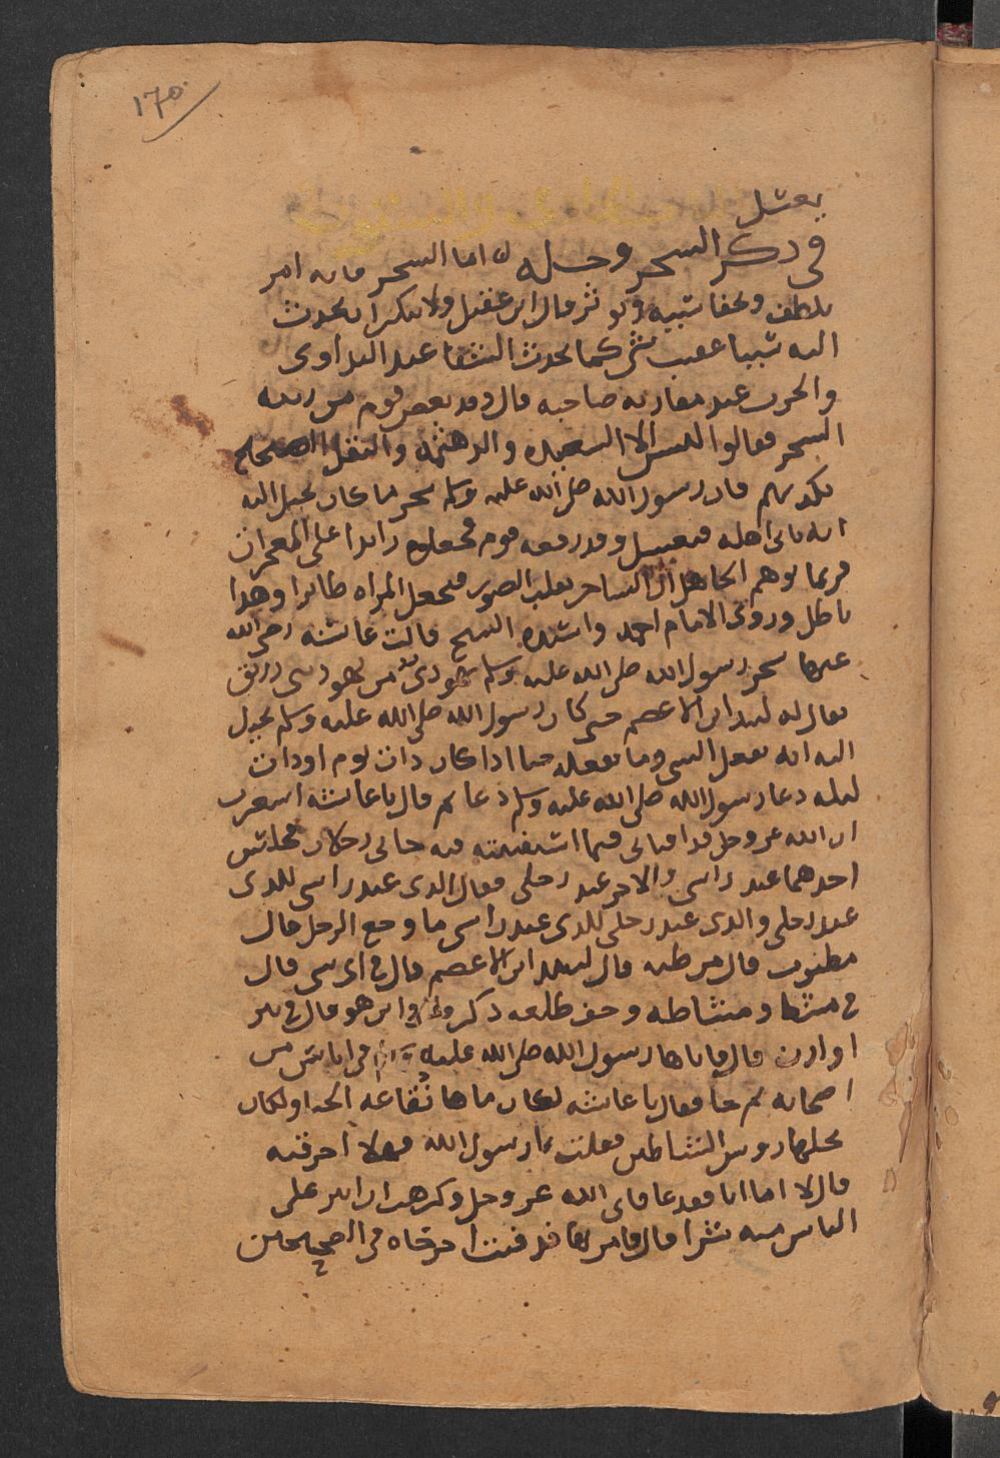 ١٧٥
فصل
في ذكر السحر وحله اما السحر فانه امر
يلطف ويخفا سببه ويوثر قال ابن عقيل ولا ينكر ان يحدث
الله شيبا عقيب شي كما يحدث الشفا عند التداوي
والحرب عند مقاربه صاحبه قال وقد بعض قوم من رتبه
السحر فقالوا ليس الا الشعبذه والدهشه والنقل الصحاح
يكذبهم فان رسول الله صلى الله عليه وسلم سحر فما كان يخيل اليه
انه ياتي اهله فيغتسل وقد رفعه قوم فجعلوه زايدا على المعجزات
فربما يوهم الجاهل ان الساحر يقلب الصور فيجعل المراه طايرا وهذا
باطل وروى الامام احمد واسنده الشيخ قالت عائشه رضي الله
عنها سحر رسول الله صلى الله عليه وسلم يهودي من يهود بني زريق
يقال له لبيد ابن الاعصم حتى كان رسول الله صلى الله عليه وسلم يخيل
اليه انه يفعل الشي وما يفعله حتا اذا كان ذات يوم او ذات
ليله دعا رسول الله صلى الله عليه وسلم دعا ثم قال يا عائشه اشعرت
ان الله عز وجل قد افتاني فيما استفتيته فيه جاني رجلان فجلس
احدهما عند راسي والاخر عند رجلي فقال الذي عند راسي للذي
عند رجلي والذي عند رجلي للذي عند راسي ما وجع الرجل قال
مطبوب قال من طبه قال لبيد ابن الاعصم قال في اي شي قال
في مشط ومشاطه وجف طلعه ذكر قال واين هو قال في بير
اوارن قال فاتاها رسول الله صلى الله عليه وسلم في اناس من
اصحابه ثم جا فقال يا عائشه لكان ماها نقاعه الحنا ولكان
نخلها روس الشياطين فقلت يا رسول الله فهلا احرقته
قال لا اما انا فقد عافاني الله عز وجل وكرهت ان اثير على
الناس منه شرا قال فامر بها فدفنت اخرجاه في الصحيحين